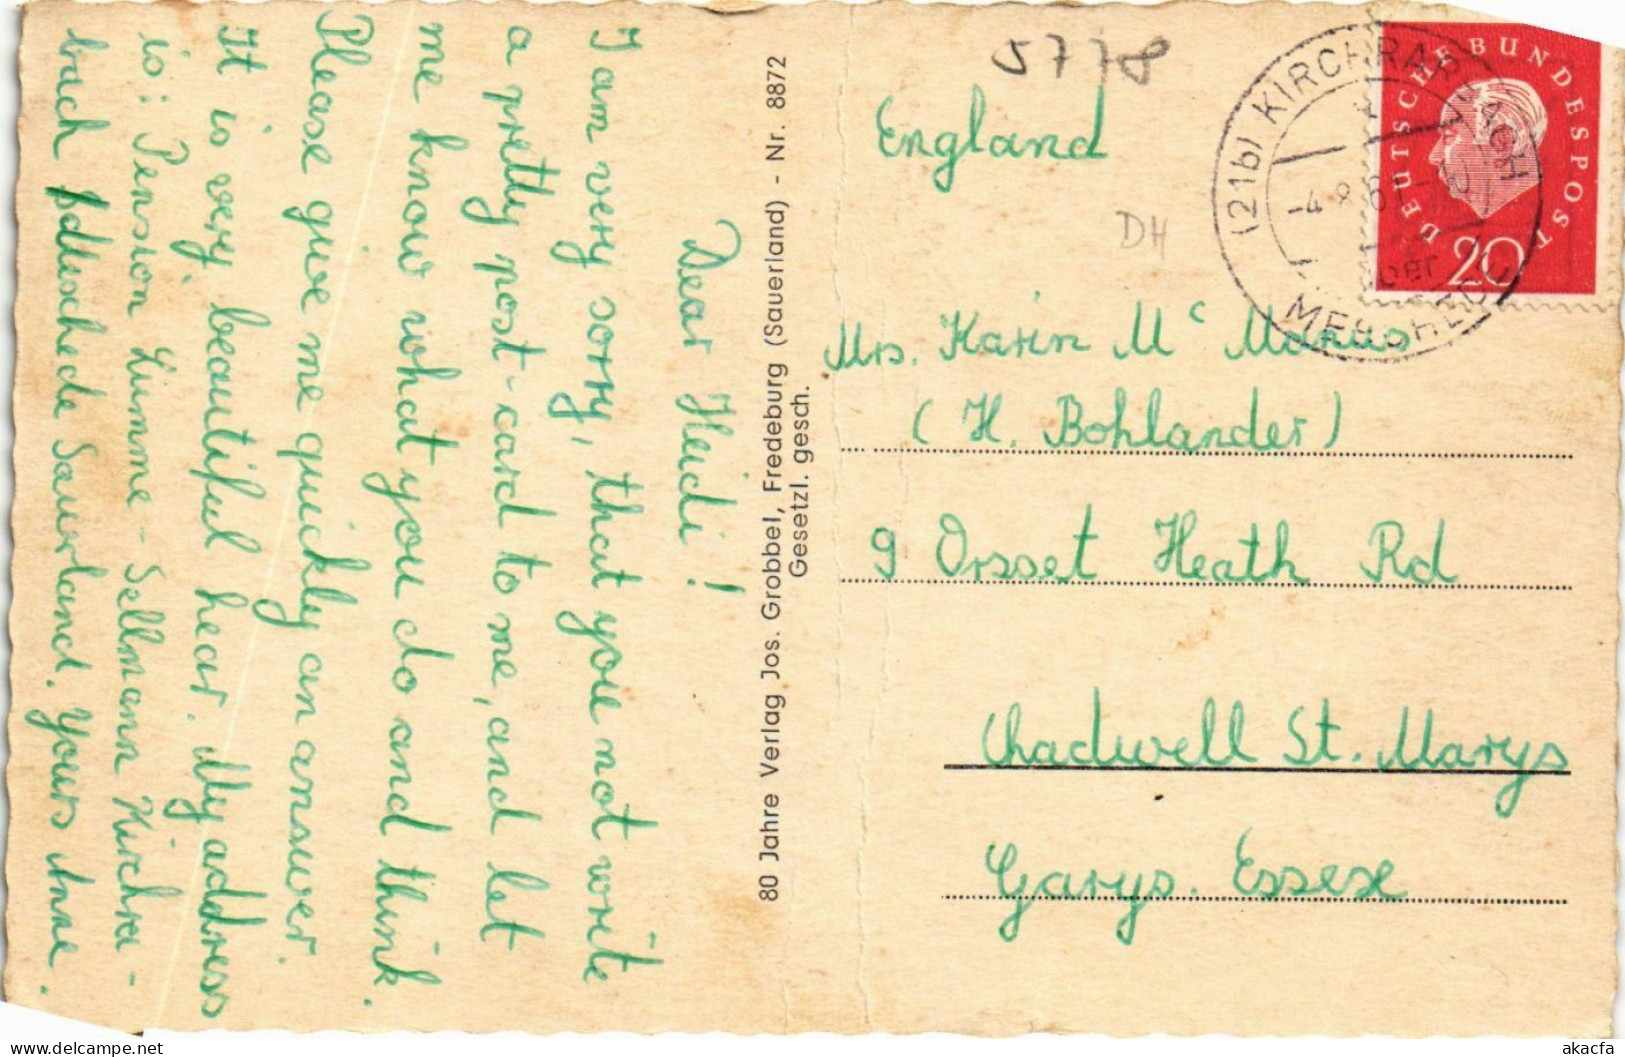 Dear Heidi!
I am very sorry, that you not write
a pretty post-card to me, and let
me know what you do and think.
Please give me quickly an answer.
It is very beautiful hear. My address
is: Pension Lumme - Sellmann Kirchra-
bach Fddischede Sauerland. Yours Anne.
80 Jahre Verlag Jos. Grobbel, Fredeburg (Sauerland) - Nr. 8872
Gesetzl. gesch.
5778
England
DH
Mrs. Karin Mc Manus
(H. Bohlander)
9 Orsset Heath Rd
Chadwell St. Marys
Garys. Essese
DEUTSCHE BUNDESPOST
20
(21b) KIRCHRARBACH
-4.8.61
über
MESCHEDE
akacfa